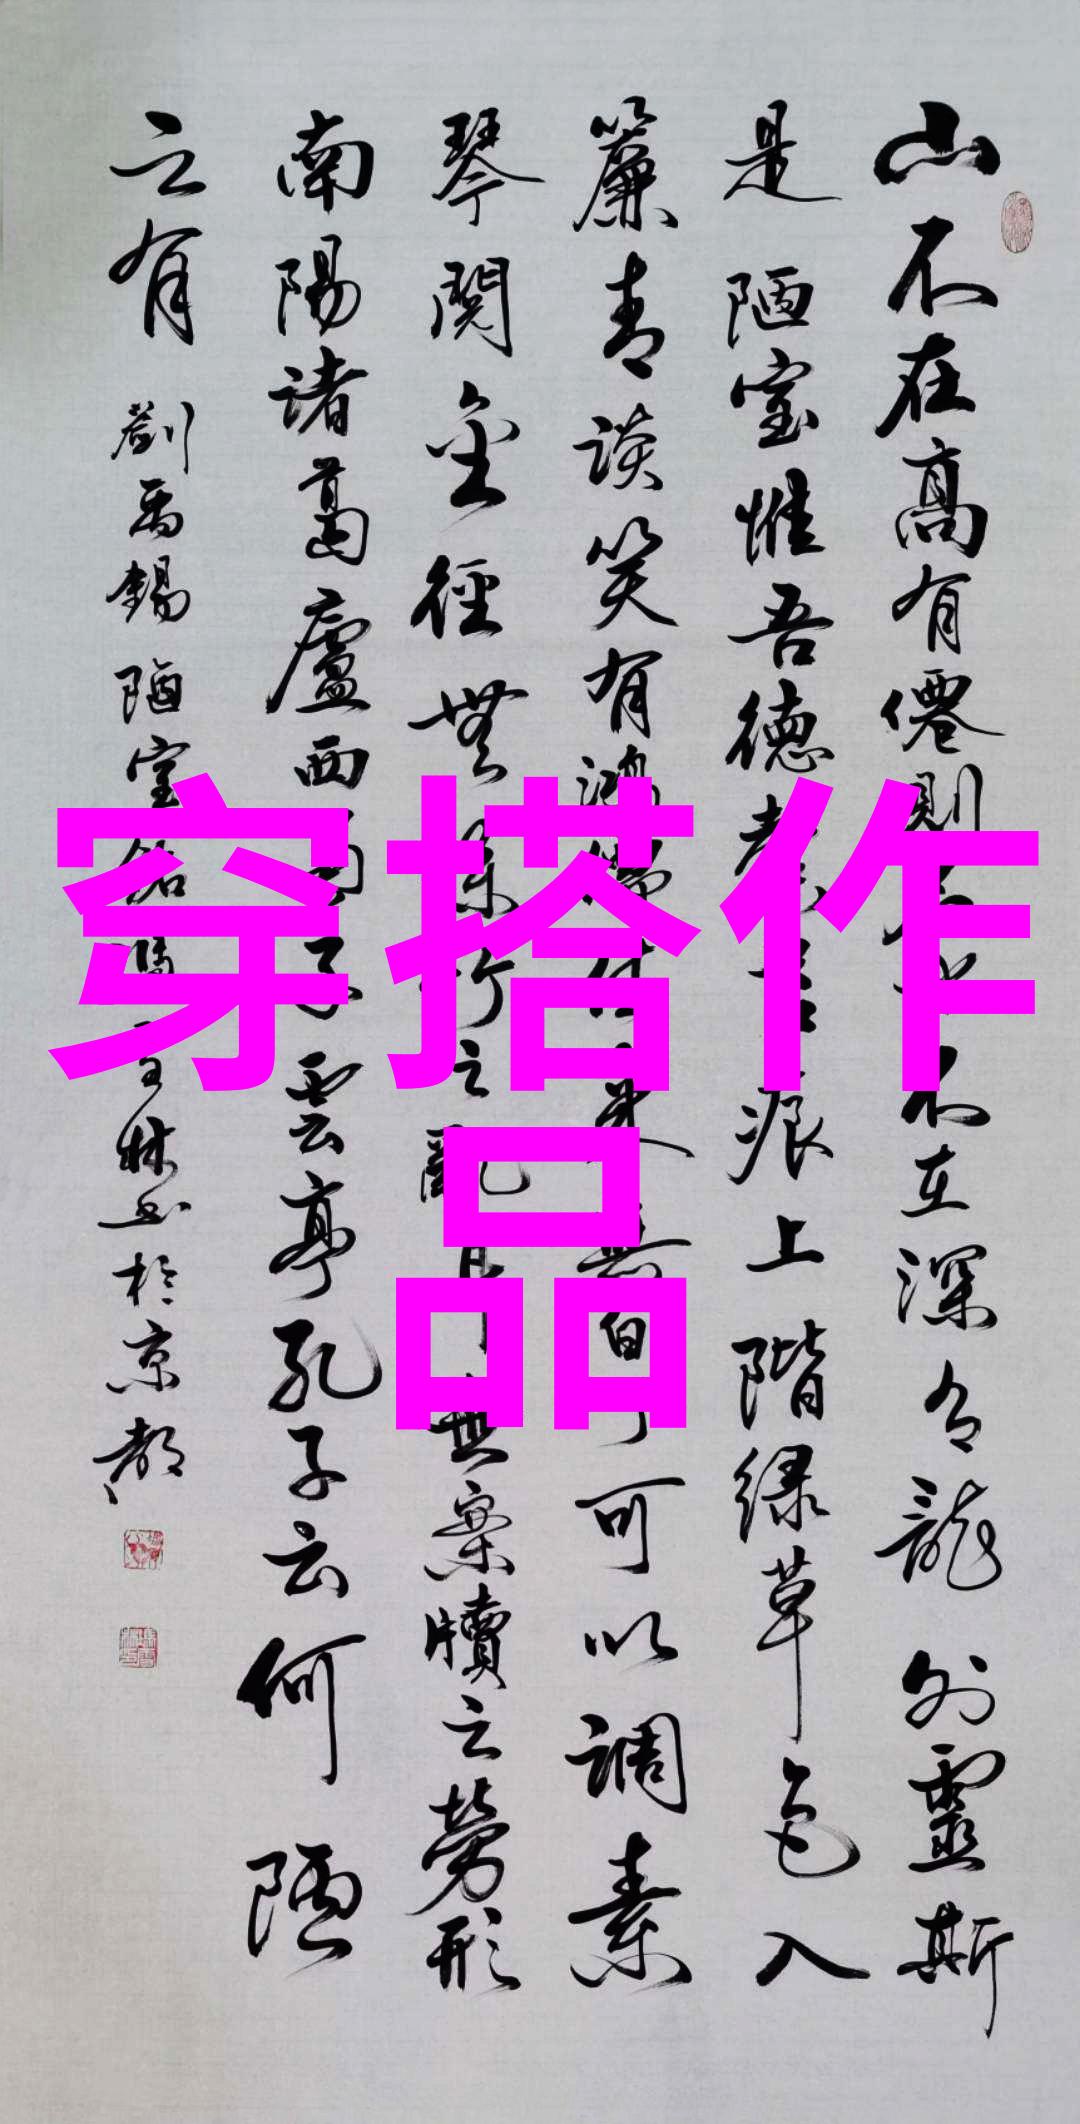 山不在高有僊則不在深有龍則靈斯
是陋室惟吾德馨苔痕上階緑草色入
簾青談笑有鴻儒往来無白丁可以調素
琴閲金徑無絲竹之亂耳無案牘之勞形
南陽諸葛廬西蜀子雲亭孔子云何陋
之有 劉禹錫陋室銘 林书於京都
穿搭作
品